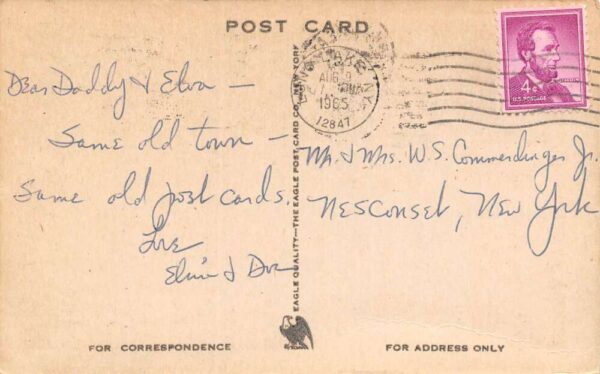 POST CARD
Dear Daddy & Elva —
Same old town —
Same old post cards.
Love
LONG LAKE, N.Y.
AUG 9
1965
12847
4¢
U.S. POSTAGE
Mr. & Mrs. W.S. Commerdinger Jr.
Nesconset, New York
EAGLE QUALITY—THE EAGLE POST CARD CO., NEW YORK
FOR CORRESPONDENCE
FOR ADDRESS ONLY